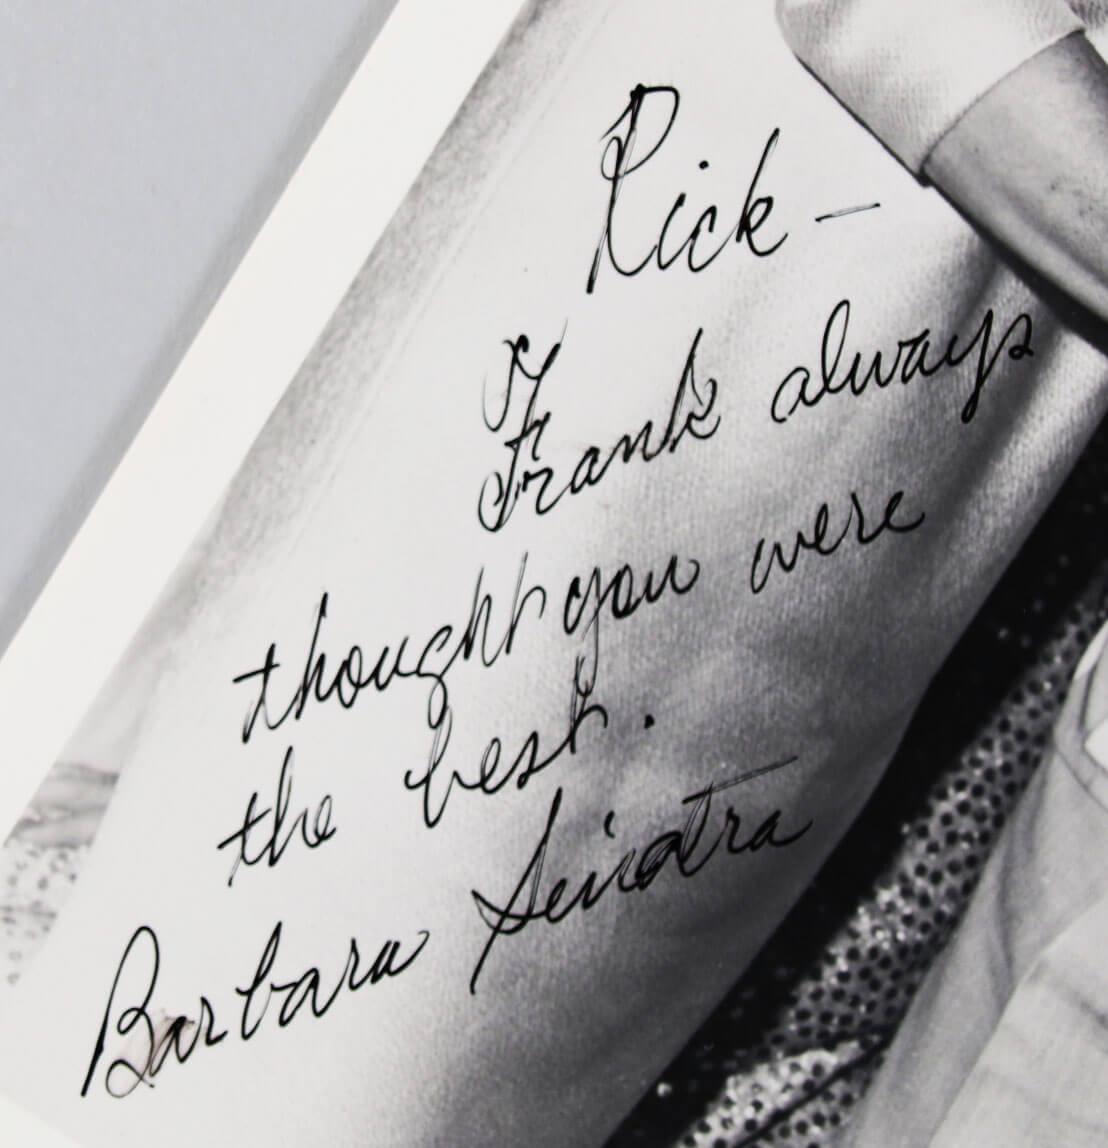 Rick –
Frank always
thought you were
the best.
Barbara Sinatra